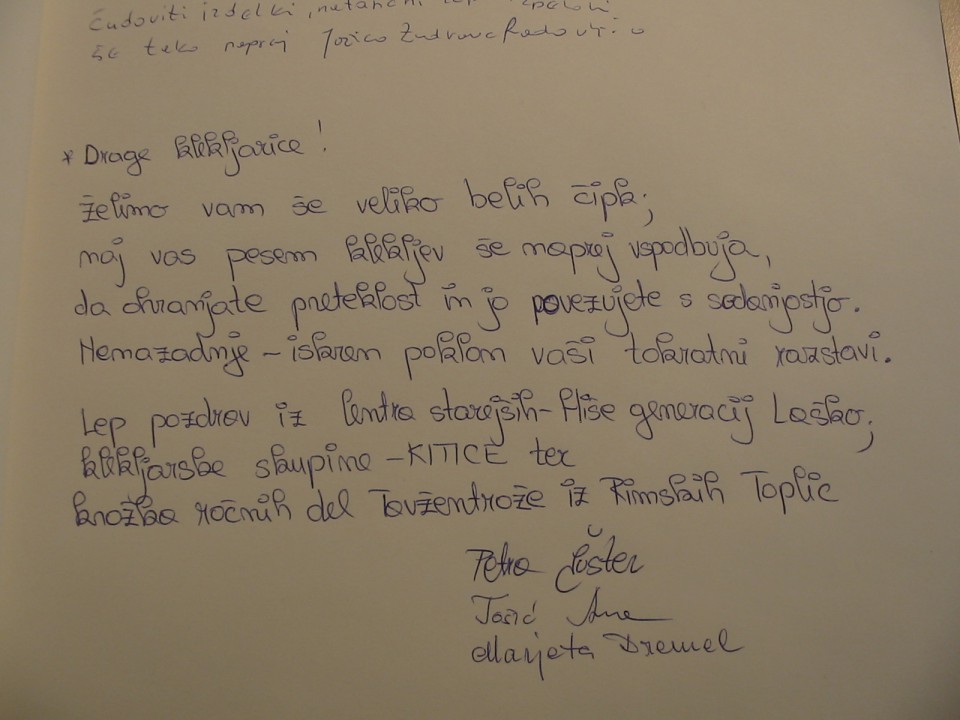 Čudoviti izdelki, natančni lepi
še tako naprej Jožica
* Drage klekljarice!
želimo vam še veliko belih čipk;
naj vas pesem klekljev še naprej vspodbuja,
da ohranjate preteklost in jo povezujete s sedanjostjo.
Nenazadnje - iskren poklon vaši tokratni razstavi.
Lep pozdrav iz Centra starejših - Hiše generacij Laško;
klekljarske skupine - KITICE ter
krožka ročnih del Tavžentrože iz Rimskih Toplic
Petra Šušter
Tasić Ana
Marjeta Dremel